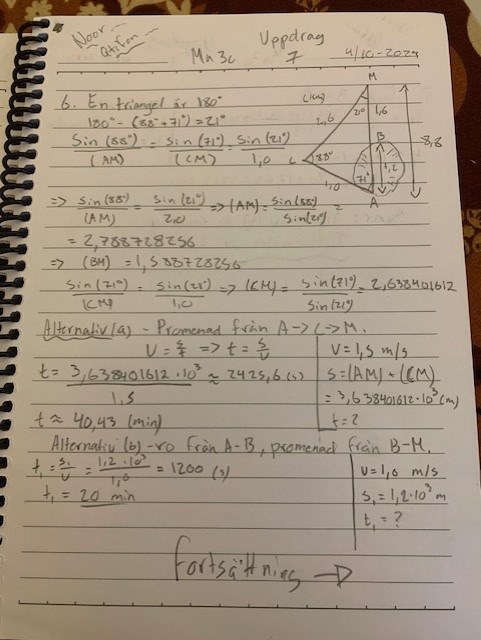 Noor
Uppdrag
Ma 3c 7 4/10-2024
6. En triangel är 180°
180° - (88° + 71°) = 21°
sin(88°)/(AM) = sin(71°)/(CM) = sin(21°)/1,0
M
(km)
2,6 21° 1,6
B 2,8
C 88° 1,2
1,0 71°
A
=> sin(88°)/(AM) = sin(21°)/1,0 => (AM) = sin(88°)/sin(21°) =
= 2,788728256
=> (BM) = 1,588728256
sin(71°)/(CM) = sin(21°)/1,0 => (CM) = sin(71°)/sin(21°) = 2,638401612
Alternativ (a) - Promenad från A -> C -> M.
v = s/t => t = s/v
t = 3,638401612·10³/1,5 ≈ 2425,6 (s)
t ≈ 40,43 (min)
v = 1,5 m/s
s = (AM) + (CM)
= 3,638401612·10³ (m)
t = ?
Alternativ (b) - ro från A-B, promenad från B-M.
t₁ = s₁/v = 1,2·10³/1,0 = 1200 (s)
t₁ = 20 min
v = 1,0 m/s
s₁ = 1,2·10³ m
t₁ = ?
Fortsättning ->